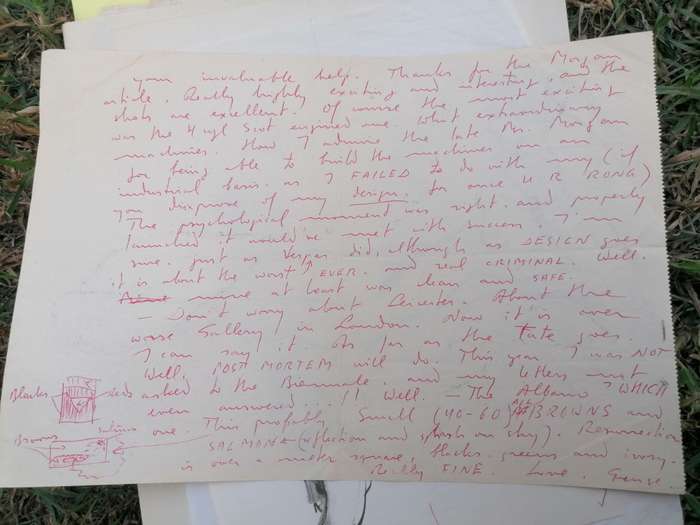 your invaluable help. Thanks for the Morgan
article. Really highly exciting and interesting, and the
shots are excellent. Of course the most exciting
was the 4 cyl Scot engined one. What extraordinary
machines. How I admire the late Mr. Morgan
for being able to build the machines on an
industrial basis. as I FAILED to do with my (if
you disaprove of my design. for once U R RONG)
The psychological moment was right. and properly
launched it would've met with success. I'm
sure. just as Vespa did, although as DESIGN goes
it is about the worst EVER. and real CRIMINAL. Well.
mine at least was clean and SAFE.
- Don't worry about Leicester. About the
worse Gallery in London. Now it's over
I can say it. As far as the Tate goes.
Well, POST MORTEM will do. This year I was NOT
asked to the Biennale. and my letters not
even answered...!! Well - The Albano? WHICH
one. This probably Small (40-60) ALL BROWNS and
SALMONA (reflection and splash on sky). Resurrection
is over a meter square, blacks. greens and ivory.
Really FINE. Love.
Blacks
reds
Browns